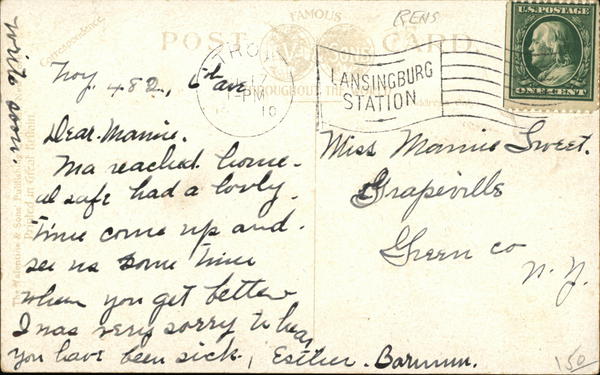 RENS
FAMOUS
POST CARD.
Correspondence.
U.S. POSTAGE
ONE CENT
TROY
PM
10
LANSINGBURG
STATION
THROUGHOUT THE
write soon.
Troy. 482, 5th ave
Dear Mamie.
Ma reached home
al safe had a lovly
time come up and
see us some time
when you get better
I was very sorry to hear
you have been sick, Esther Barnum.
Miss Mamie Sweet.
Grapeville
Green co
N. Y.
150
The Valentine & Sons' Publish
Printed in Great Britain.